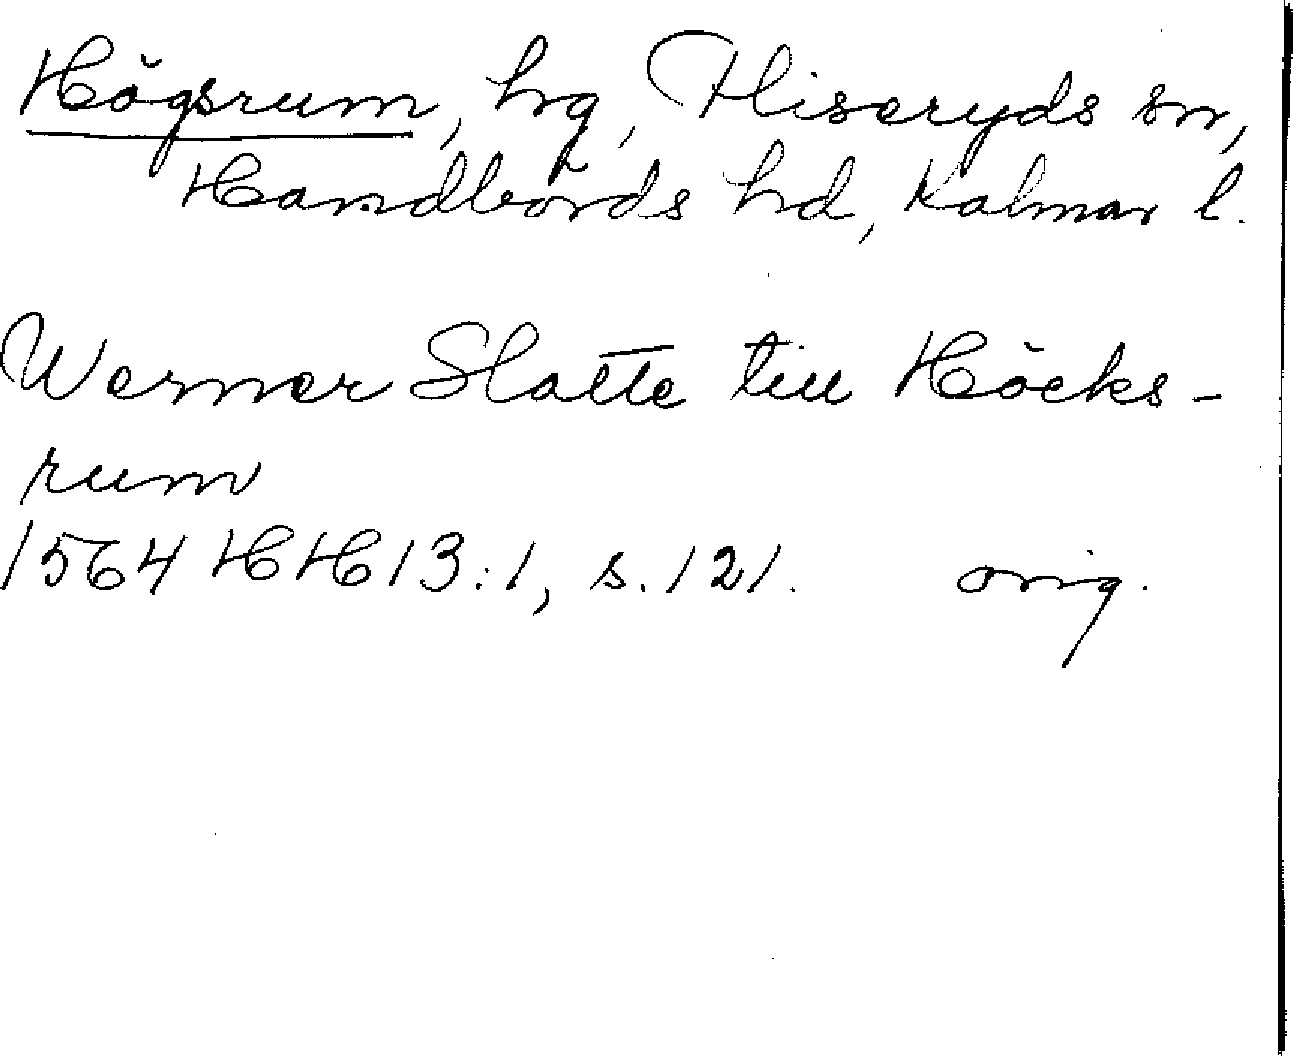 Högsrum, hg, Fliseryds sn,
Handbörds hd, Kalmar l.
Werner Slatte till Höcks-
rum
1564 HH 13:1, s. 121. orig.